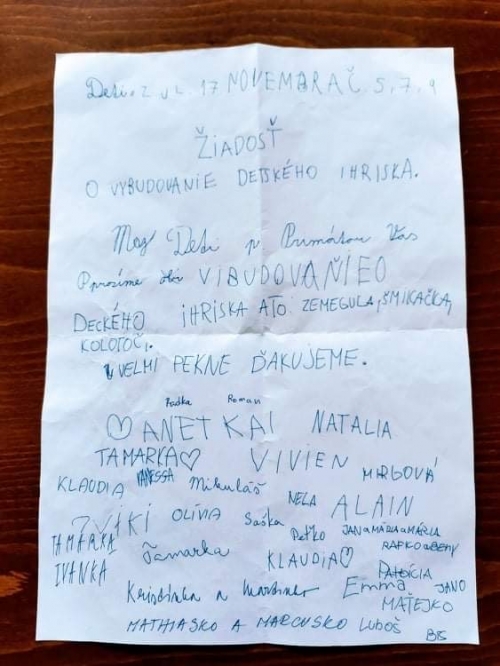 Deti z ul 17 NOVEMBRA Č 5,7,9
ŽIADOSŤ
O VYBUDOVANIE DETSKÉHO IHRISKA.
My Deti p Primátor Vás
prosíme VIBUDOVAŇIEO
DECKÉHO IHRISKA ATO ZEMEGULA, ŠMIKAČKA,
KOLOTOČI.
VELMI PEKNE ĎAKUJEME.
Roman
ANETKA NATALIA
TAMARKA VIVIEN
KLAUDIA VANESSA Mikuláš NELA ALAIN
OLÍVIA Saška Peťko JAN a MÁRIA a MÁRIA
TAMARKA Tamarka KLAUDIA
IVANKA Emma JANO
MAŤEJKO
MATHIASKO A MARCUSKO LUBOŠ